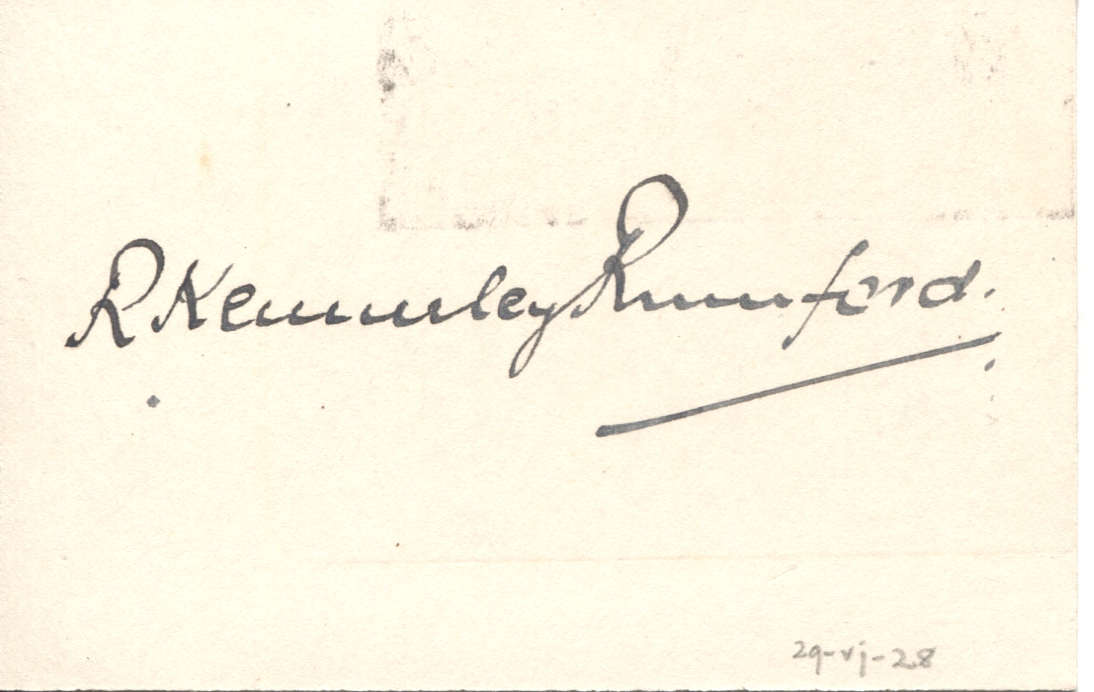 R Kennerley Rumford.
29-vj-28